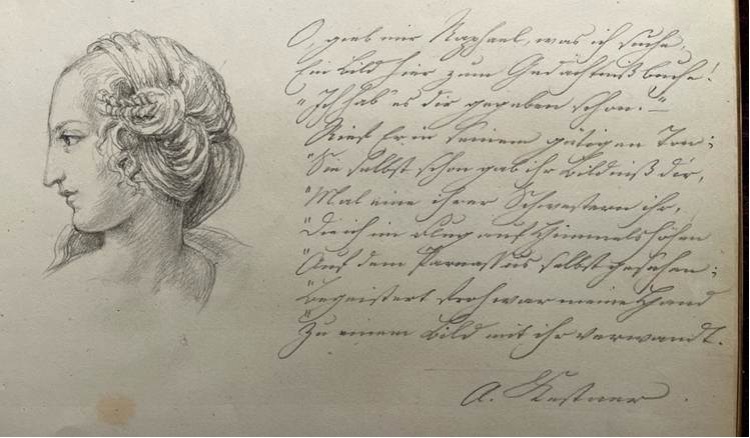 O, gieb mir Raphael, was ich suche,
Ein Bild hier zum Gedächtnißbuche!
"Ich hab' es dir gegeben schon."
Rief Er in seinem gütigen Ton;
"Sie selbst schon gab ihr Bildniß dir,
"Mal eine ihrer Schwestern ihr,
"Die ich im Flug auf Himmelshöhen
"Auf dem Parnassus selbst gesehen;
"Begeistert froh war meine Hand
"Zu einem Bild mit ihr verwandt.
A. Kestner.